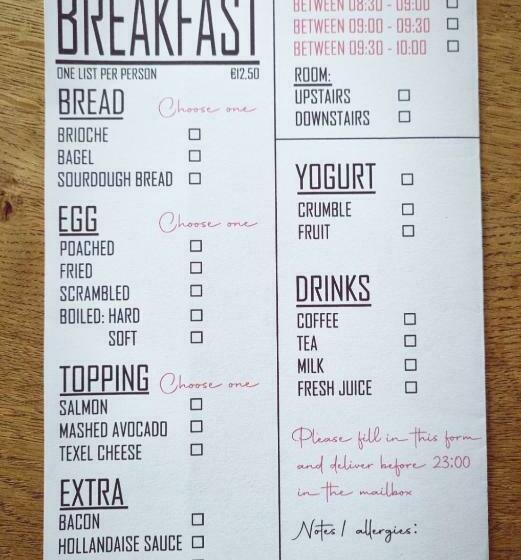 BREAKFAST
ONE LIST PER PERSON €12.50
BREAD Choose one
BRIOCHE
BAGEL
SOURDOUGH BREAD
EGG Choose one
POACHED
FRIED
SCRAMBLED
BOILED: HARD
SOFT
TOPPING Choose one
SALMON
MASHED AVOCADO
TEXEL CHEESE
EXTRA
BACON
HOLLANDAISE SAUCE
BETWEEN 08:30 - 09:00
BETWEEN 09:00 - 09:30
BETWEEN 09:30 - 10:00
ROOM:
UPSTAIRS
DOWNSTAIRS
YOGURT
CRUMBLE
FRUIT
DRINKS
COFFEE
TEA
MILK
FRESH JUICE
Please fill in this form
and deliver before 23:00
in the mailbox
Notes / allergies: